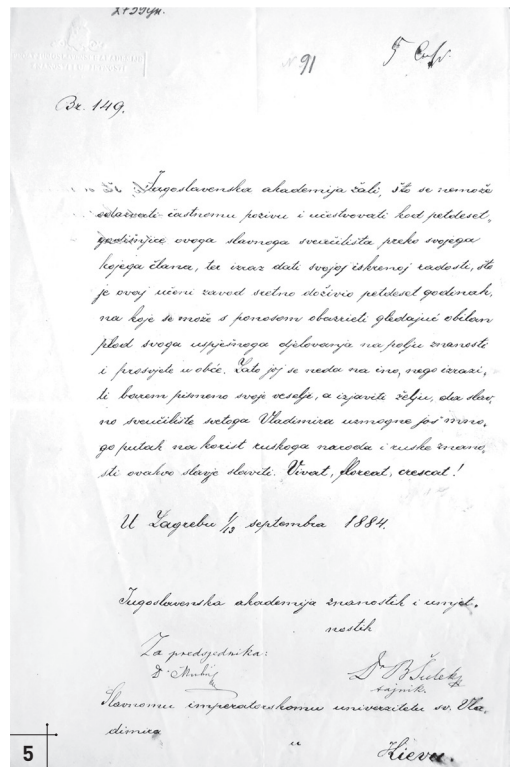 91
Br. 149.
Jugoslavenska akademija žali, što se nemože
odazvati častnomu pozivu i učestvovati kod petdeset-
godišnjice ovoga slavnoga sveučilišta preko svojega
kojega člana, ter izraz dati svojoj iskrenoj radosti, što
je ovaj učeni zavod sretno doživio petdeset godinah,
na koje se može s ponosom obazrieti gledajuć obilan
plod svoga uspješnoga djelovanja na polju znanosti
i prosvjete u obće. Zato joj se neda na ino, nego izrazi-
ti barem pismeno svoje veselje, a izjaviti želju, da slav-
no sveučilište svetoga Vladimira uzmogne još mno-
go putah na korist ruskoga naroda i ruske znano-
sti ovakvo slavje slaviti. Vivat, floreat, crescat!
U Zagrebu 1/13 septembra 1884.
Jugoslavenska akademija znanostih i umjet-
nostih
Za predsjednika:
Dr. Muhić
Dr B Šulek
tajnik.
Slavnomu imperatorskomu univerzitetu sv. Vla-
dimira
u
Kievu.
5